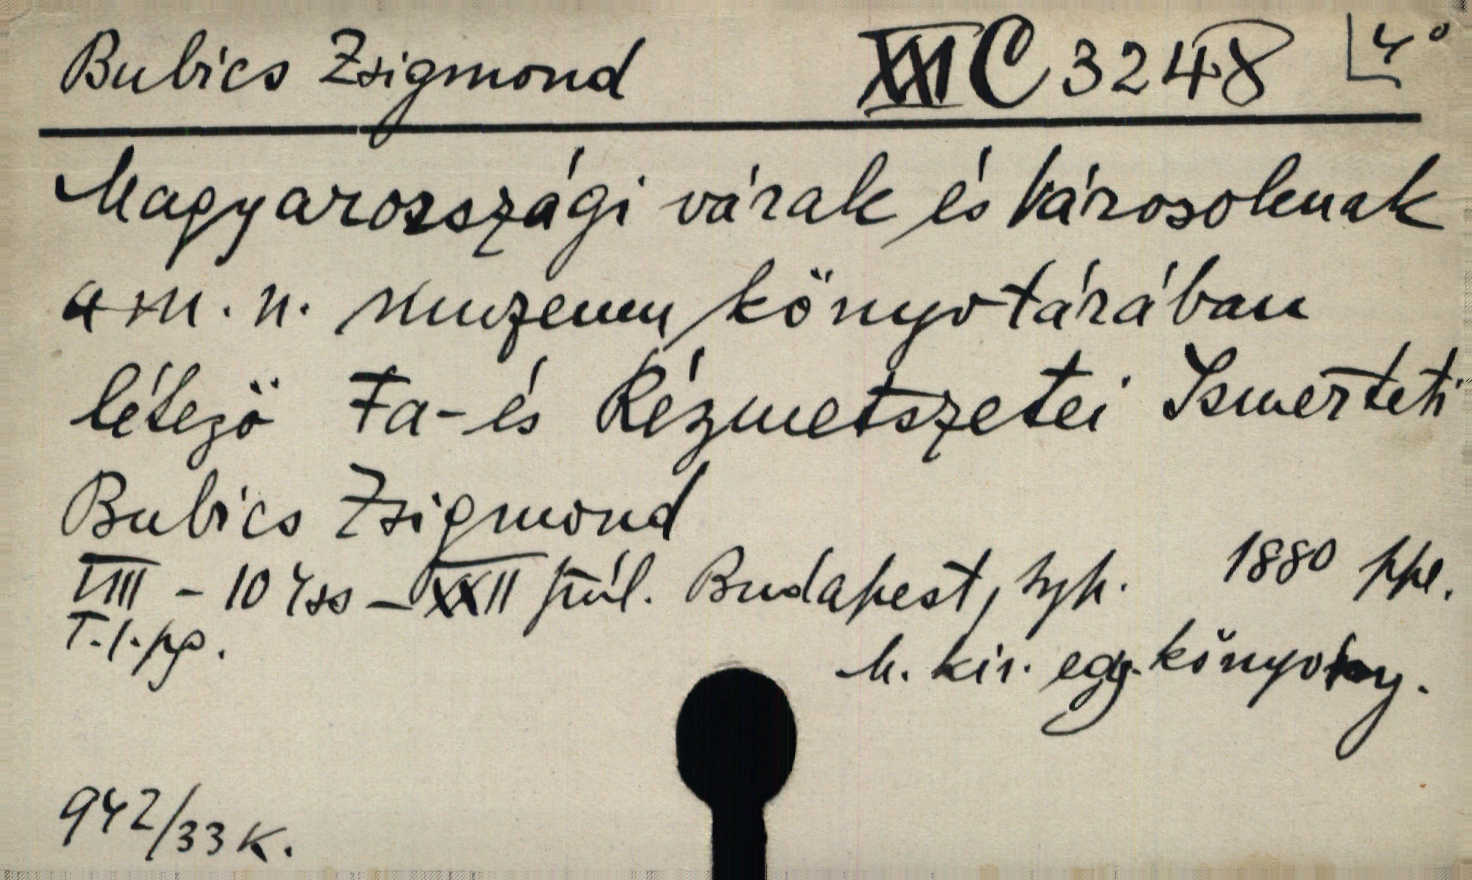 Bubics Zsigmond XXI C 3248 4°
Magyarországi várak és városoknak
a m. n. muzeum könyvtárában
létező Fa-és Rézmetszetei Ismerteti
Bubics Zsigmond
LIII - 104 ss - XXII Budapest, typ. 1880
T. l.
M. kir. egy. könyvny.
942/33 K.